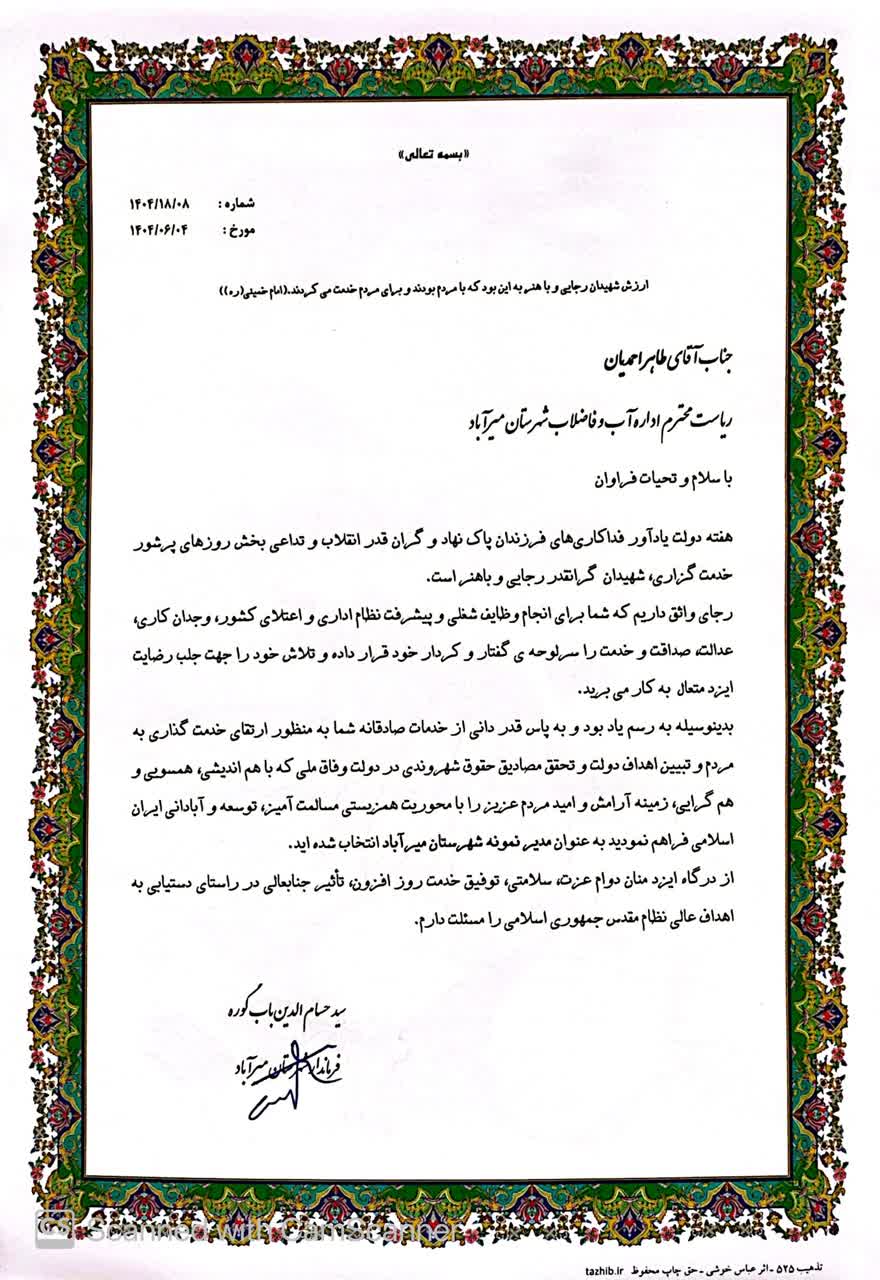 «بسمه تعالی»
شماره : ۱۴۰۴/۱۸/۰۸
مورخ : ۱۴۰۴/۰۶/۰۴
ارزش شهیدان رجایی و با هنر به این بود که با مردم بودند و برای مردم خدمت می کردند.(امام خمینی(ره))
جناب آقای طاهر احمدیان
ریاست محترم اداره آب و فاضلاب شهرستان میرآباد
با سلام و تحیات فراوان
هفته دولت یادآور فداکاری‌های فرزندان پاک نهاد و گران قدر انقلاب و تداعی بخش روزهای پرشور
خدمت گزاری، شهیدان گرانقدر رجایی و باهنر است.
رجای واثق داریم که شما برای انجام وظایف شغلی و پیشرفت نظام اداری و اعتلای کشور، وجدان کاری،
عدالت، صداقت و خدمت را سرلوحه ی گفتار و کردار خود قرار داده و تلاش خود را جهت جلب رضایت
ایزد متعال به کار می برید.
بدینوسیله به رسم یاد بود و به پاس قدر دانی از خدمات صادقانه شما به منظور ارتقای خدمت گذاری به
مردم و تبیین اهداف دولت و تحقق مصادیق حقوق شهروندی در دولت وفاق ملی که با هم اندیشی، همسویی و
هم گرایی، زمینه آرامش و امید مردم عزیز را با محوریت همزیستی مسالمت آمیز، توسعه و آبادانی ایران
اسلامی فراهم نمودید به عنوان مدیر نمونه شهرستان میرآباد انتخاب شده اید.
از درگاه ایزد منان دوام عزت، سلامتی، توفیق خدمت روز افزون، تأثیر جنابعالی در راستای دستیابی به
اهداف عالی نظام مقدس جمهوری اسلامی را مسئلت دارم.
سید حسام الدین باب گوره
فرماندار شهرستان میرآباد
CS Scanned with CamScanner
تذهیب ۵۲۵ - اثر عباس خوشی - حق چاپ محفوظ tazhib.ir